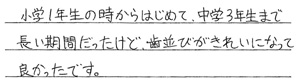 小学1年生の時からはじめて、中学3年生まで
長い期間だったけど、歯並びがきれいになって
良かったです。